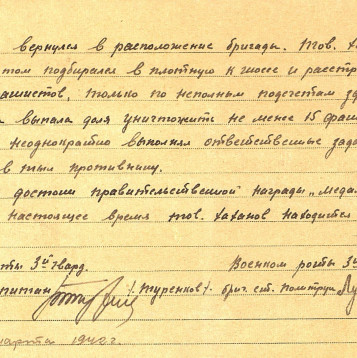 вернулся в расположение бригады. Тов. Х
том подбирался в плотную к шоссе и расстр
ашистов, только по неполным подсчетам за
а выпала доля уничтожить не менее 15 фаш
неоднократно выполнял ответственные зада
в тыл противнику.
достоин правительственной награды „Медал
настоящее время тов. Хаханов находится
ты 3й гвард. Военком роты 3
питан /Туренков/. бриг. ст. политрук
марта 1942 г.